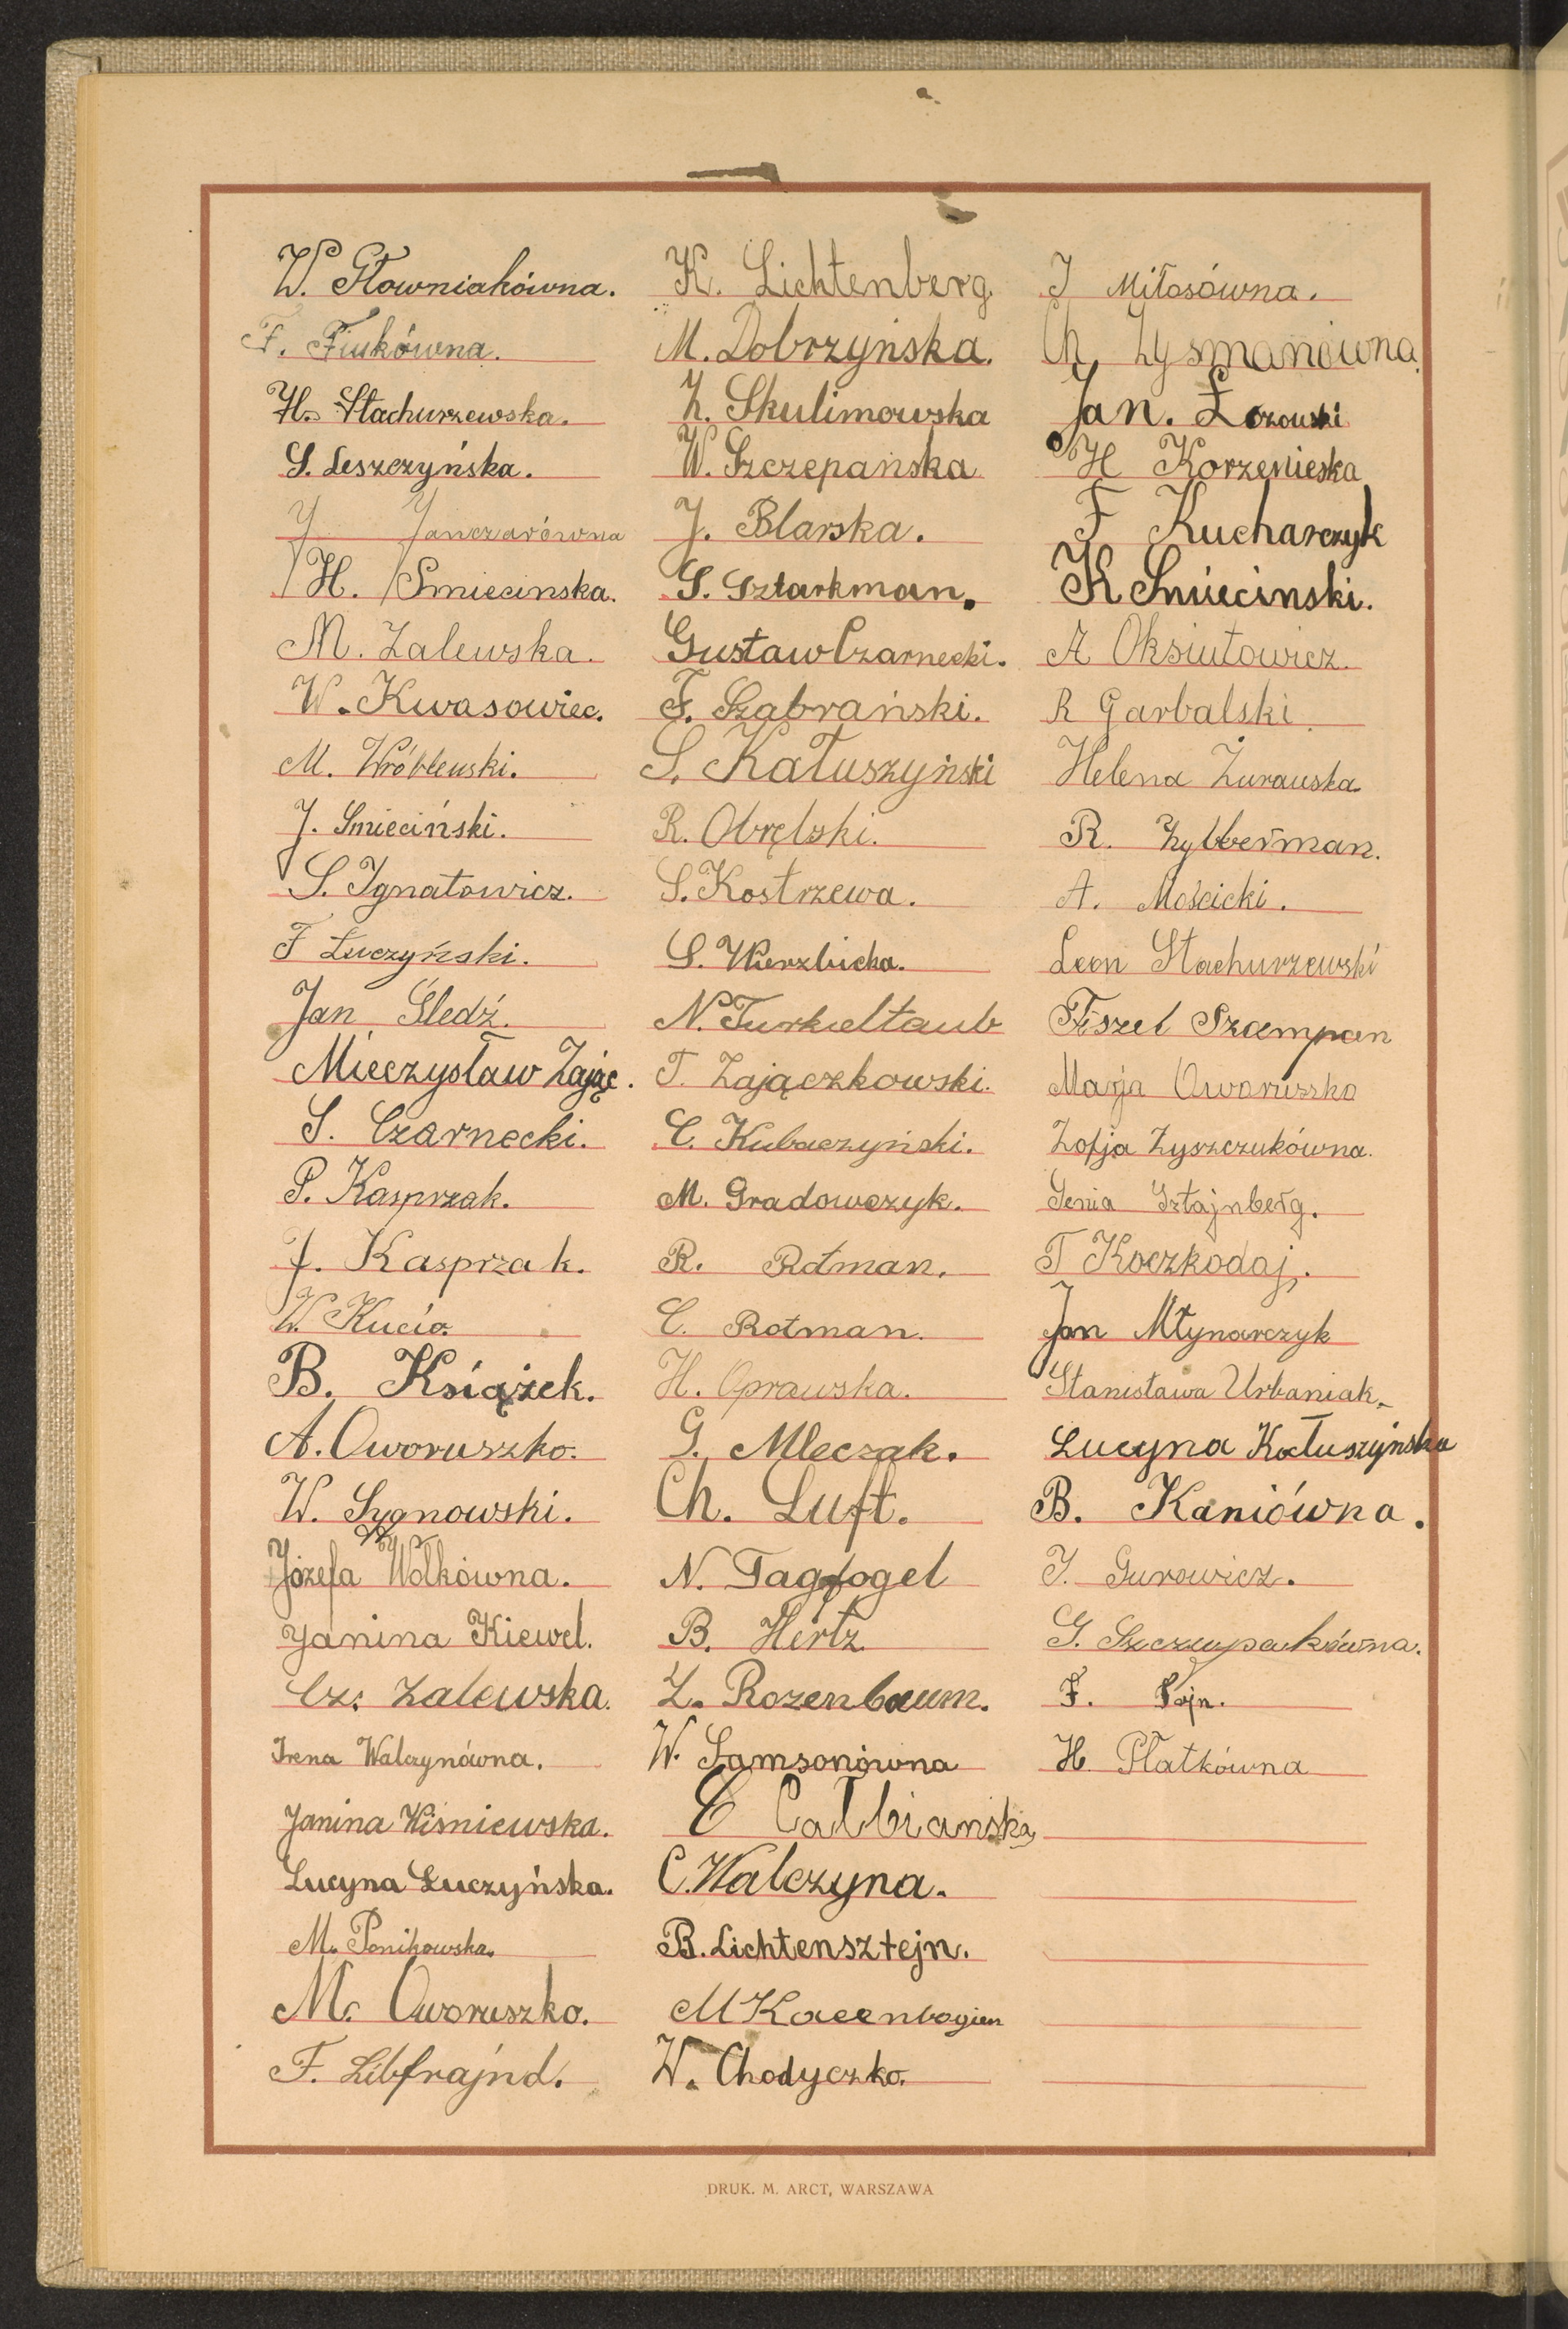 W. Głowniakówna.
F. Fiukówna.
H. Stachurzewska.
S. Leszczyńska.
J Janczarówna
H. Smiecinska.
M. Zalewska.
W. Kwasowiec.
M. Wróblewski.
J. Smieciński.
S. Ignatowicz.
F Łuczyński.
Jan Śledź.
Mieczysław Zając.
S. Czarnecki.
P. Kasprzak.
J. Kasprzak.
W. Kucio.
B. Książek.
A. Oworuszko.
W. Sygnowski.
Józefa Wołkówna.
Janina Kiewel.
Cz. Zalewska.
Irena Walczynówna.
Janina Wiśniewska.
Lucyna Łuczyńska.
M. Ponikowska.
M. Oworuszko.
F. Libfrajnd.
K. Lichtenberg
M. Dobrzyńska.
Z. Skulimowska
W. Szczepańska
J. Blarska.
S. Sztarkman.
Gustaw Czarnecki.
F. Szabrański.
S. Kałuszyński
R. Obrębski.
S. Kostrzewa.
S. Wierzbicka.
N. Turkieltaub
T. Zajączkowski.
C. Kubaczyński.
M. Gradowczyk.
R. Rotman.
C. Rotman.
H. Oprawska.
G. Mleczak.
Ch. Luft.
N. Tagfogel
B. Hertz
Z. Rozenbaum.
W. Samsonówna
C Całbianska
C. Walczyna.
B. Lichtensztejn.
M Kacenbogien
W. Chodyczko.
J Miłosówna.
Ch. Zysmanówna.
Jan. Łozowski
H Korzenieska
F Kucharczyk
K Smiecinski.
A Oksiutowicz.
R Garbalski.
Helena Żurawska.
R. Zylberman.
A. Mościcki.
Leon Stachurzewski
Fiszel Szampan
Marja Oworuszko
Zofja Zyszczukówna.
Genia Sztajnberg.
T Koczkodaj.
Jan Młynarczyk
Stanisława Urbaniak.
Lucyna Kałuszyńska
B. Kaniówna.
J. Gurowicz.
G. Szczupakówna.
F. Fajn.
H. Płatkówna
DRUK. M. ARCT, WARSZAWA